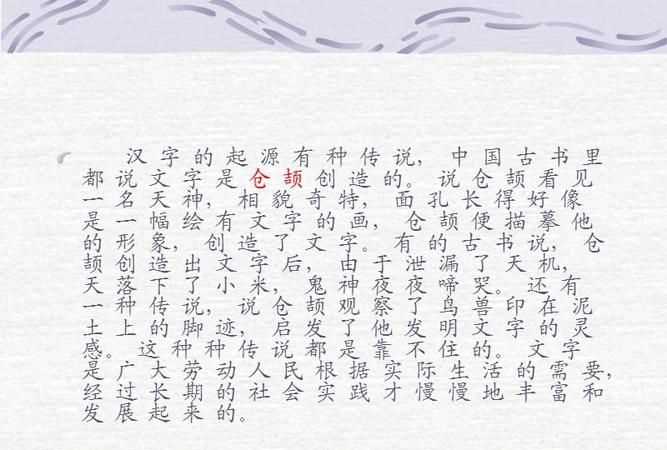 汉字的起源有种传说，中国古书里
都说文字是仓颉创造的。说仓颉看见
一名天神，相貌奇特，面孔长得好像
是一幅绘有文字的画，仓颉便描摹他
的形象，创造了文字。有的古书说，仓
颉创造出文字后，由于泄漏了天机，
天落下了小米，鬼神夜夜啼哭。还有
一种传说，说仓颉观察了鸟兽印在泥
土上的脚迹，启发了他发明文字的灵
感。这种种传说都是靠不住的。文字
是广大劳动人民根据实际生活的需要，
经过长期的社会实践才慢慢地丰富和
发展起来的。